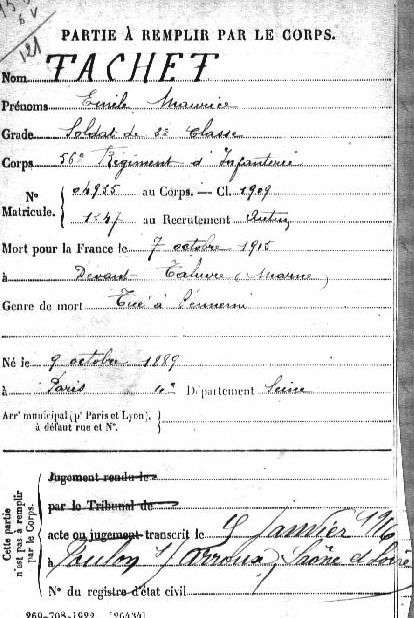 121
PARTIE À REMPLIR PAR LE CORPS.
Nom TACHET
Prénoms Emile Maurice
Grade Soldat de 2e classe
Corps 56e Régiment d'Infanterie
N° Matricule. 04955 au Corps. — Cl. 1909
1547 au Recrutement Autun
Mort pour la France le 7 octobre 1915
à Devant Tahure (Marne)
Genre de mort Tué à l'ennemi
Né le 9 octobre 1889
à Paris 4e Département Seine
Arrt municipal (pr Paris et Lyon), à défaut rue et N°.
Cette partie n'est pas à remplir par le Corps.
Jugement rendu le
par le Tribunal de
acte ou jugement transcrit le Janvier 1916
à Toulon s/ Arroux, Saône et Loire
N° du registre d'état civil
269-708-1922. [26434]